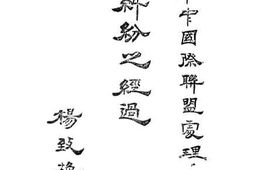 國際聯盟處理
糾紛之經過
楊致